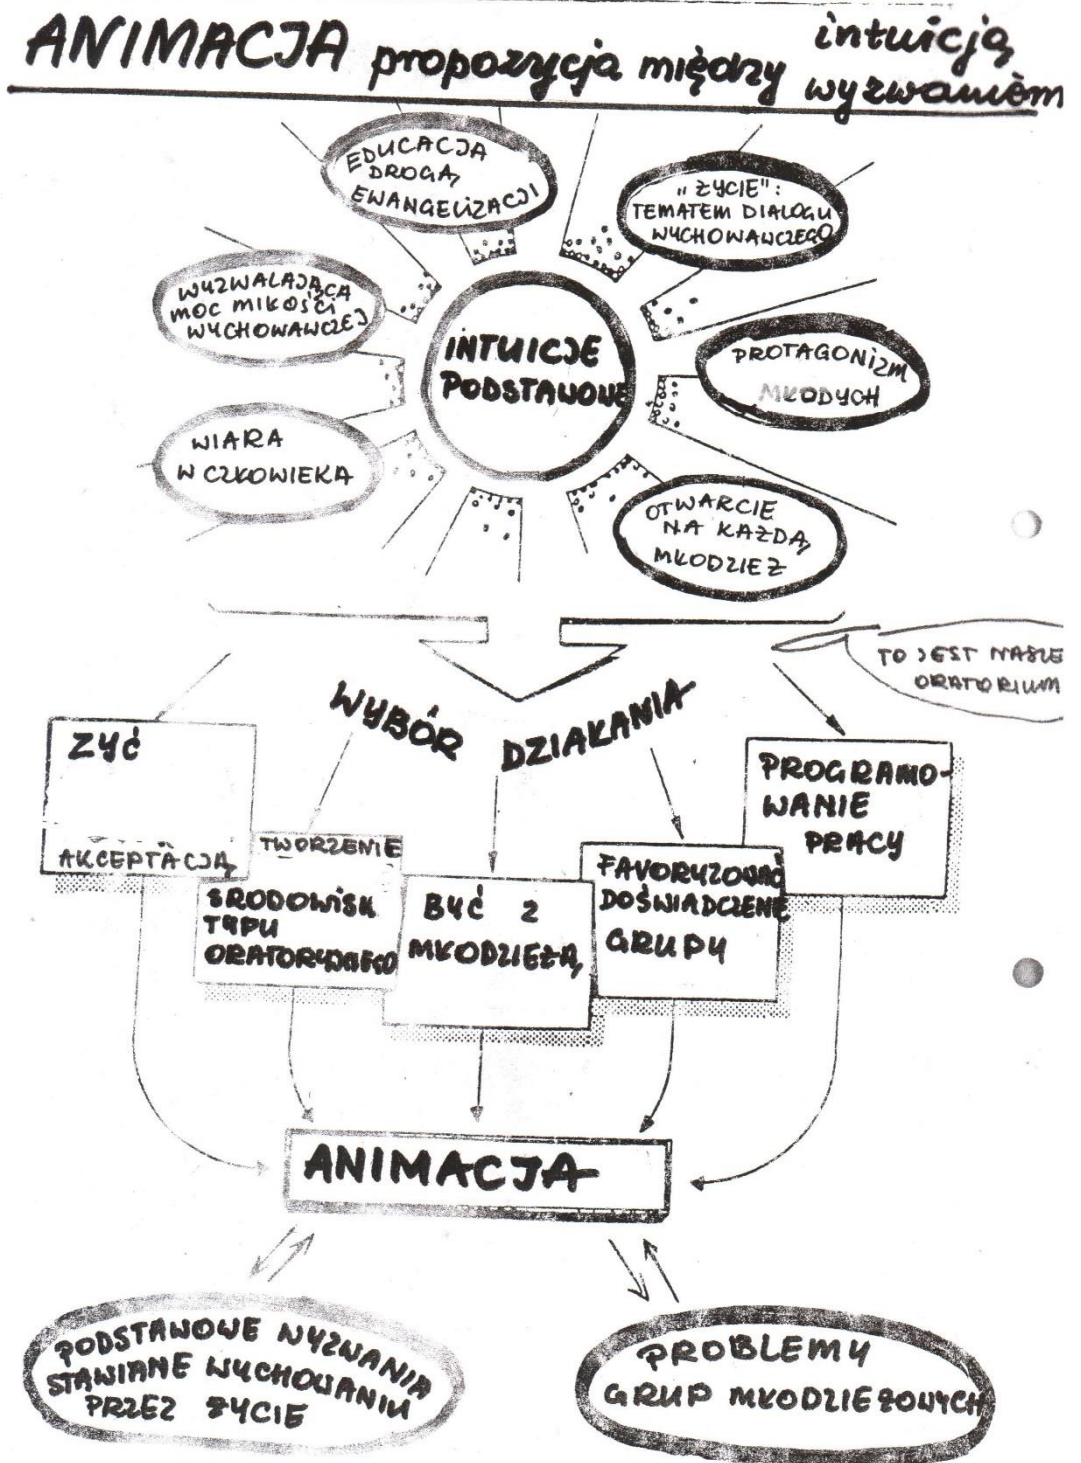 ANIMACJA propozycja między intuicją
wyzwaniem
EDUCACJA
DROGĄ
EWANGELIZACJI
„ŻYCIE":
TEMATEM DIALOGU
WYCHOWAWCZEGO
WYZWALAJĄCA
MOC MIŁOŚCI
WYCHOWAWCZEJ
INTUICJE
PODSTAWOWE
PROTAGONIZM
MŁODYCH
WIARA
W CZŁOWIEKA
OTWARCIE
NA KAŻDĄ
MŁODZIEŻ
TO JEST NASZE
ORATORIUM
WYBÓR DZIAŁANIA
ŻYĆ
AKCEPTACJĄ
TWORZENIE
ŚRODOWISK
TYPU
ORATORYJNEGO
BYĆ Z
MŁODZIEŻĄ
FAVORYZOWAĆ
DOŚWIADCZENIE
GRUPY
PROGRAMO-
WANIE
PRACY
ANIMACJA
PODSTAWOWE WYZWANIA
STAWIANE WYCHOWANIU
PRZEZ ŻYCIE
PROBLEMY
GRUP MŁODZIEŻOWYCH